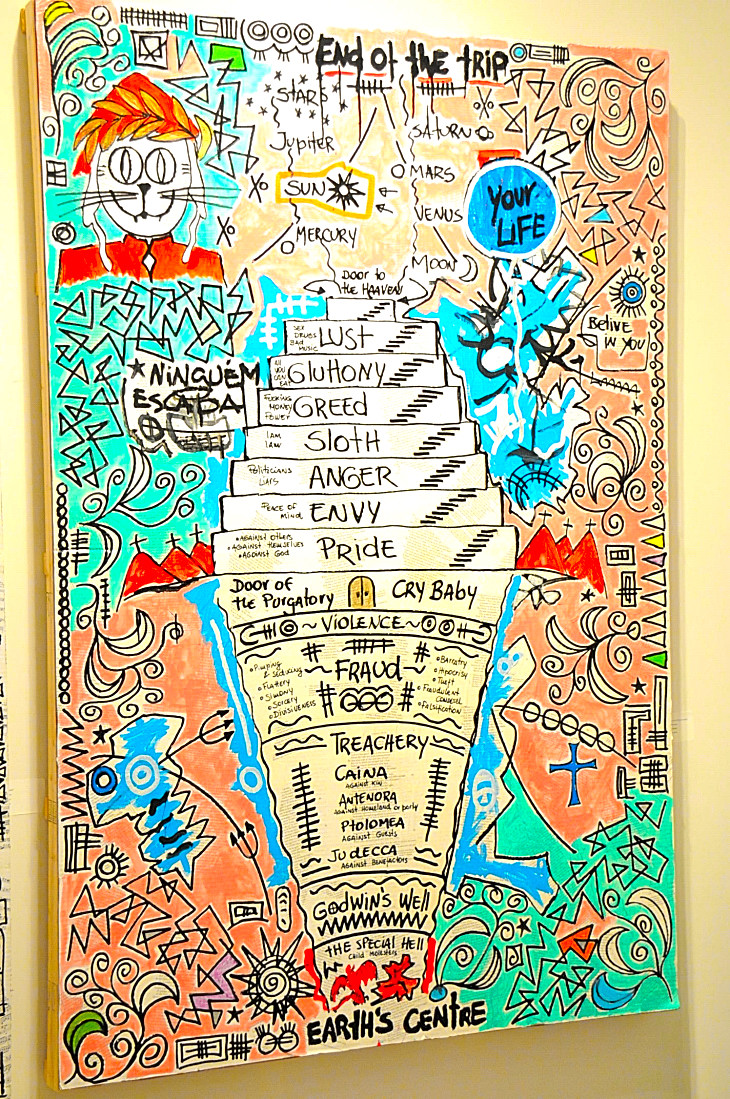 End of the trip
STARS
Jupiter
SATURN
SUN
MARS
VENUS
MERCURY
MOON
YOUR
LIFE
DOOR to
the HAAVEN
BELIVE
IN YOU
SEX
DRUGS
BAD
MUSIC
LUST
ALL
YOU
CAN
EAT
GLUHONY
★NINGUÉM
ESCAPA
FUCKING
MONEY
POWER
GREED
I AM
LAW
SLOTH
POLITICIANS
LIARS
ANGER
PEACE OF
MIND
ENVY
• AGAINST OTHERS
• AGAINST THEMSELVES
• AGAINST GOD
PRIDE
DOOR OF
the PURGATORY
CRY BABY
~VIOLENCE~
• PIMPING
& SEDUCING
• FLATTERY
• SIMONY
• SORCERY
• DIVISIVENESS
FRAUD
• BARRATRY
• HIPOCRISY
• THEFT
• FRAUDULENT
COUNSEL
• FALSIFICATION
TREACHERY
CAINA
AGAINST KIN
ANTENORA
AGAINST HOMELAND OR PARTY
PtOLOMEA
AGAINST GUESTS
JUDECCA
AGAINST BENEFACTORS
GODWIN'S WELL
THE SPECIAL HELL
CHILD MOLESTERS
EARTH'S CENTRE